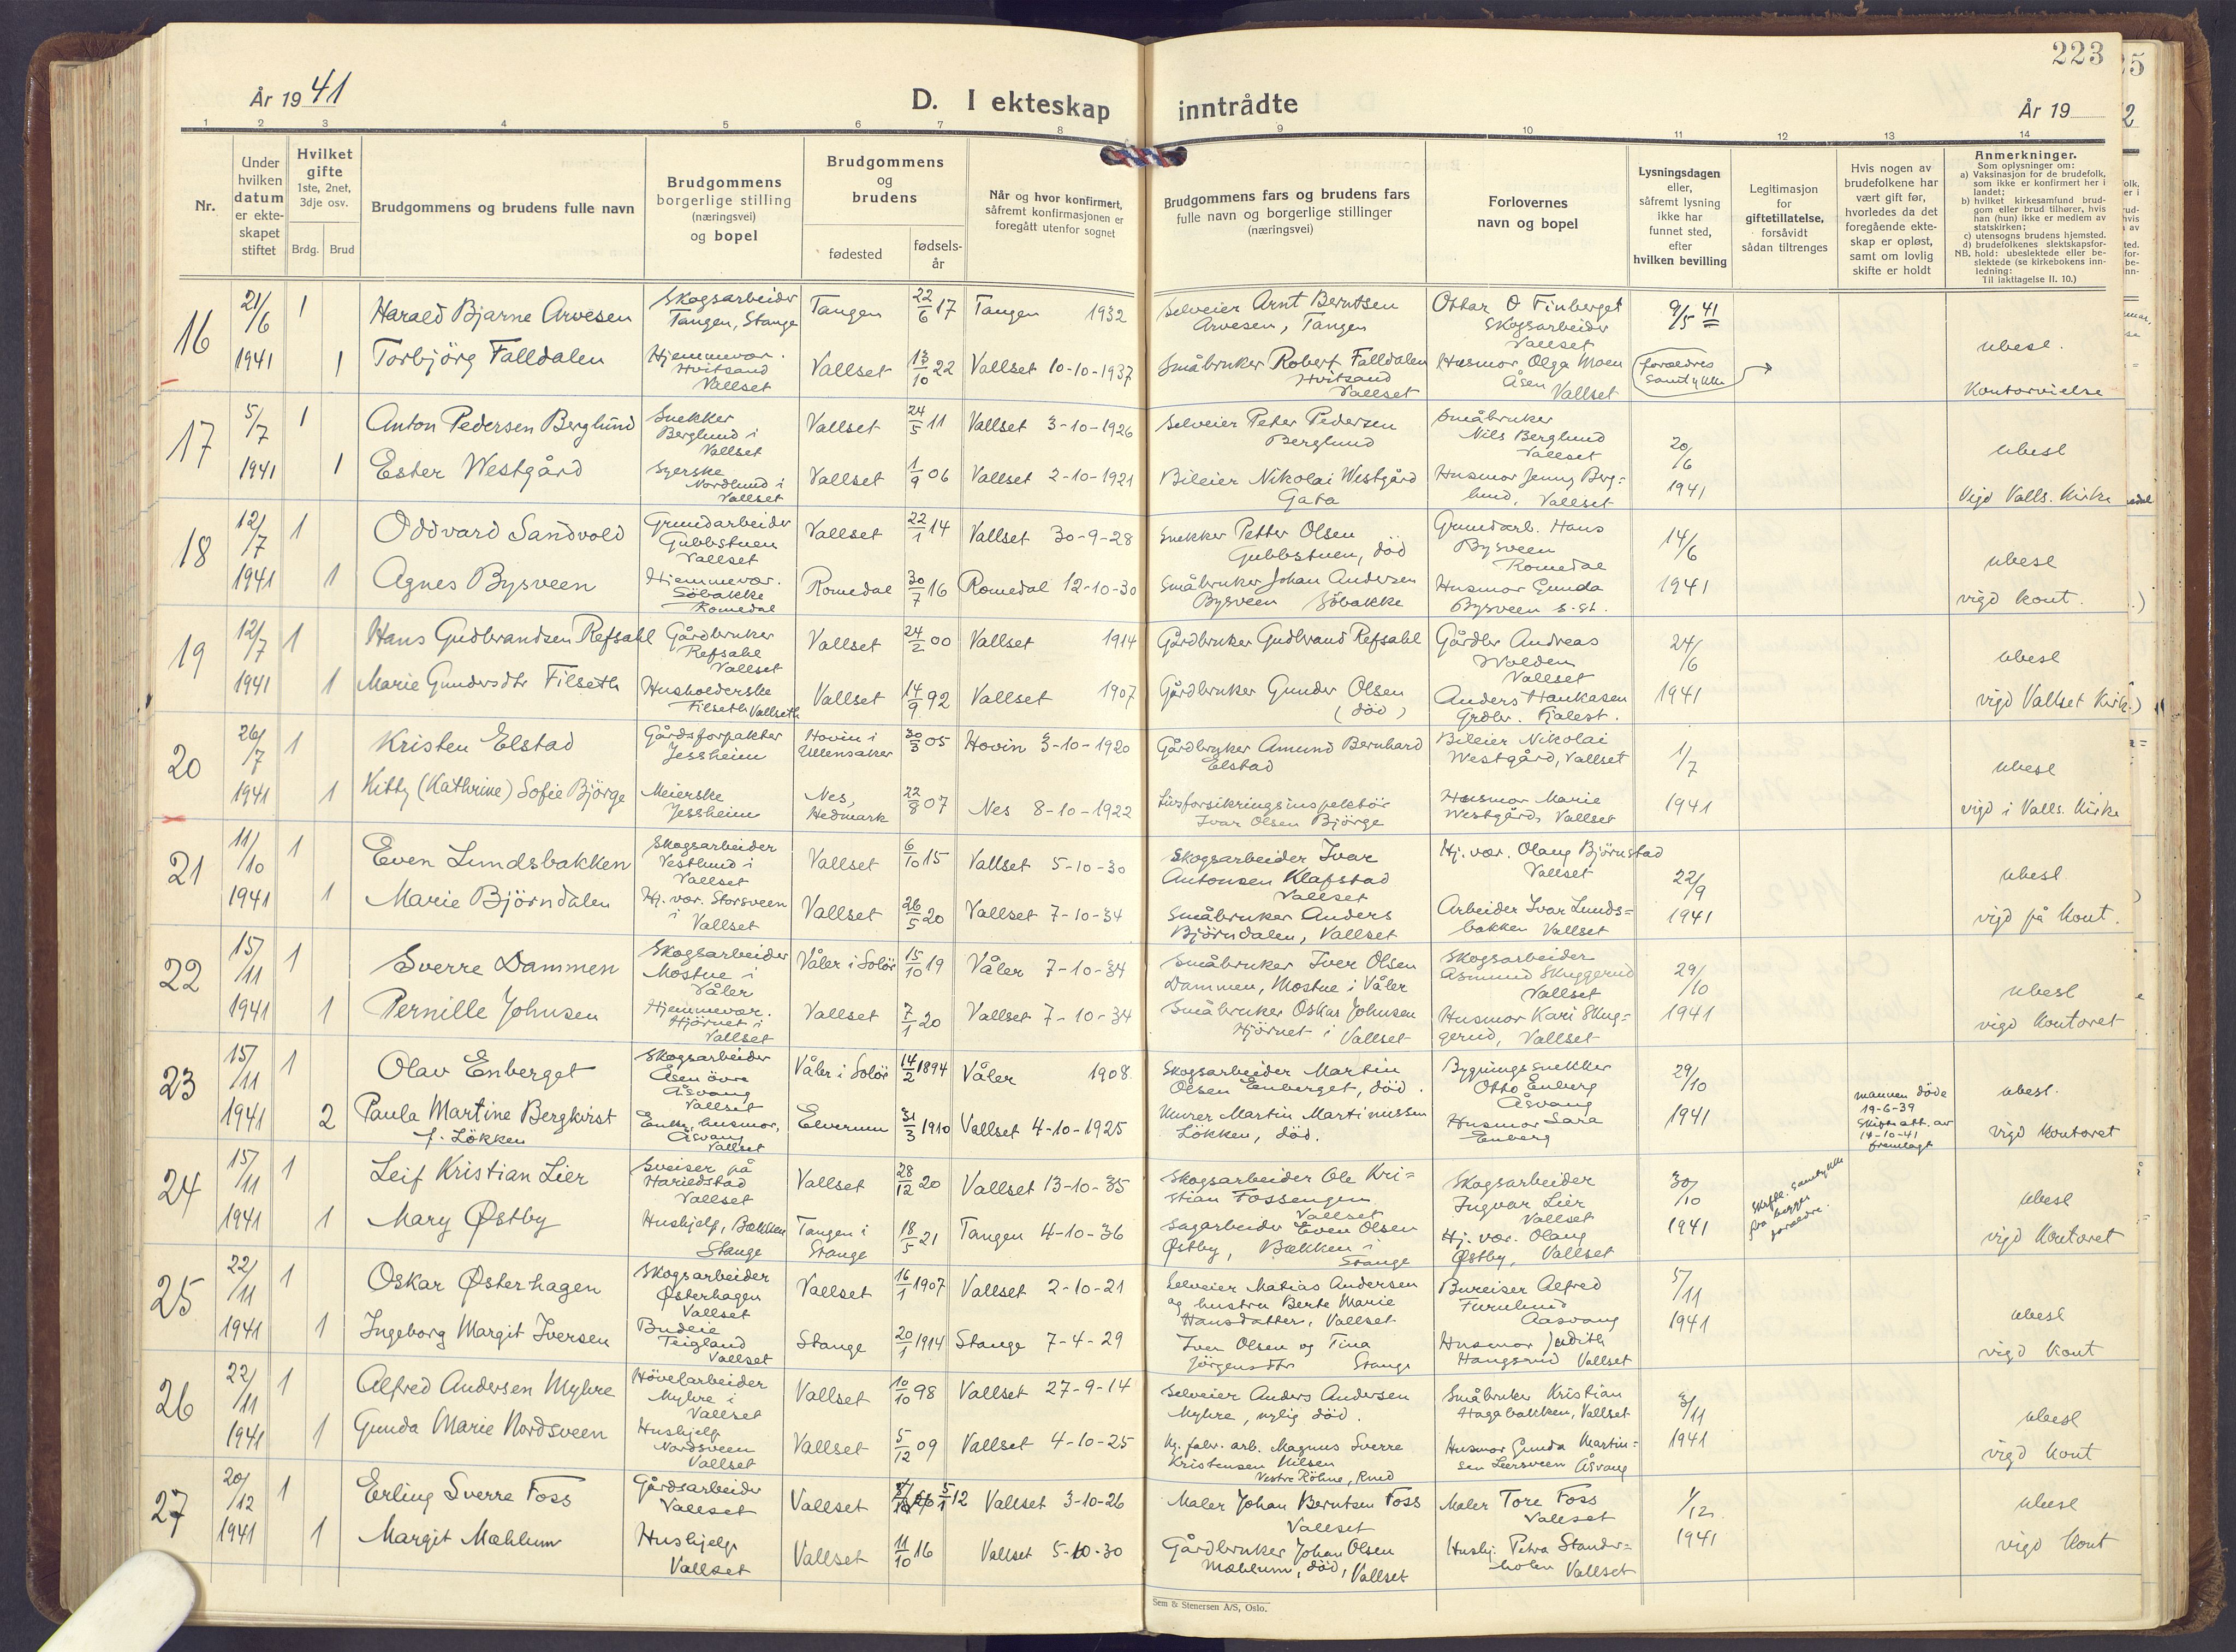 223
År 1941
D. I ekteskap inntrådte
År 19
1 2 3 4 5 6 7 8 9 10 11 12 13 14
Nr.
Under hvilken datum er ekteskapet stiftet
Hvilket gifte 1ste, 2net, 3dje osv.
Brdg. Brud
Brudgommens og brudens fulle navn
Brudgommens borgerlige stilling (næringsvei) og bopel
Brudgommens og brudens
fødested
fødselsår
Når og hvor konfirmert, såfremt konfirmasjonen er foregått utenfor sognet
Brudgommens fars og brudens fars fulle navn og borgerlige stillinger (næringsvei)
Forlovernes navn og bopel
Lysningsdagen eller, såfremt lysning ikke har funnet sted, efter hvilken bevilling
Legitimasjon for giftetillatelse, forsåvidt sådan tiltrenges
Hvis nogen av brudefolkene har vært gift før, hvorledes da det foregående ekteskap er opløst, samt om lovlig skifte er holdt
Anmerkninger.
Som oplysninger om:
a) Vaksinasjon for de brudefolk, som ikke er konfirmert her i landet;
b) hvilket kirkesamfund brudgom eller brud tilhører, hvis han (hun) ikke er medlem av statskirken;
c) utensogns brudens hjemsted.
d) brudefolkenes slektskapsforhold: ubeslektede eller beslektede (se kirkebokens innledning:
NB.
Til iakttagelse II. 10.)
16 21/6 1941 1 Harald Bjarne Arvesen Skogsarbeider Tangen, Stange Tangen 22/6 17 Tangen 1932 Selveier Arnt Berntsen Arvesen, Tangen Ottar O Finberget Skogsarbeider Vallset 9/5 41 ubesl.
1 Torbjörg Falldalen Hjemmevær. Hvitsand Vallset Vallset 13/10 22 Vallset 10-10-1937 Småbruker Robert Falldalen Hvitsand Vallset Husmor Olga Moen Åsen Vallset foreldres samtykke Kontorvielse
17 5/7 1941 1 Anton Pedersen Berglund Snekker Berglund i Vallset Vallset 24/5 11 Vallset 3-10-1926 Selveier Peter Pedersen Berglund Småbruker Nils Berglund Vallset 20/6 1941 ubesl
1 Ester Westgård Syerske Nordlund i Vallset Vallset 1/9 06 Vallset 2-10-1921 Bileier Nikolai Westgård Gata Husmor Jenny Berglund, Vallset Vigd Valls. Kirke
18 12/7 1941 1 Oddvard Sandvold Grundarbeider Gubbstuen Vallset Vallset 22/1 14 Vallset 30-9-28 Snekker Petter Olsen Gubbstuen, död Grundarb. Hans Bysveen Romedal 14/6 1941 ubesl
1 Agnes Bysveen Hjemmevær. Söbakke Romedal Romedal 30/7 16 Romedal 12-10-30 Småbruker Johan Andersen Bysveen Söbakke Husmor Gunda Bysveen s. st. vigd kont.
19 12/7 1941 1 Hans Gudbrandsen Refsahl Gårdbruker Refsahl Vallset Vallset 24/2 00 Vallset 1914 Gårdbruker Gudbrand Refsahl Gårdbr Andreas Wolden Vallset 24/6 1941 ubesl
1 Marie Gundersdtr Filseth Husholderske Filseth Vallseth Vallset 14/9 92 Vallset 1907 Gårdbruker Gunder Olsen (död) Anders Haukasen Grdbr. Fjælest. vigd Vallset Kirk.
20 26/7 1941 1 Kristen Elstad Gårdsforpakter Jessheim Hovin i Ullensaker 30/3 05 Hovin 3-10-1920 Gårdbryker Amund Bernhard Elstad Bileier Nikolai Westgård, Vallset 1/7 1941 ubesl
1 Kitty (Kathrine) Sofie Björge Meierske Jessheim Nes, Hedmark 22/8 07 Nes 8-10-1922 Livsforsikringsinspektör Ivar Olsen Björge Husmor Marie Westgård, Vallset vigd i Valls. Kirke
21 11/10 1941 1 Even Lundsbakken Skogsarbeider Vestlund i Vallset Vallset 6/10 15 Vallset 5-10-30 Skogsarbeider Ivar Antonsen Klafstad Vallset Hj. vær. Olaug Björnstad Vallset 22/9 1941 ubesl
1 Marie Björndalen Hj. vær. Storsveen i Vallset Vallset 26/5 20 Vallset 7-10-34 Småbruker Anders Björndalen, Vallset Arbeider Ivar Lundsbakken Vallset vigd på Kont.
22 15/11 1941 1 Sverre Dammen Skogsarbeider Mostue i Våler Våler i Solör 15/10 19 Våler 7-10-34 Småbruker Iver Olsen Dammen, Mostue i Våler Skogsarbeider Asmund Skuggerud Vallset 29/10 1941 ubesl
1 Pernille Johnsen Hjemmevær. Hjörnet i Vallset Vallset 7/1 20 Vallset 7-10-34 Småbruker Oskar Johnsen Hjörnet i Vallset Husmor Kari Skuggerud, Vallset vigd Kontoret
23 15/11 1941 1 Olav Enberget Skogsarbeider Åsen övre Åsvang Vallset Våler i Solör 14/2 1894 Våler 1908. Skogsarbeider Martin Olsen Enberget, död. Bygningssnekker Otto Enberg Åsvang 29/10 1941 ubesl.
2 Paula Martine Bergkvist f. Lökken Enke, husmor, Åsvang Vallset Elverum 31/3 1910 Vallset 4-10-1925 Murer Martin Martinussen Lökken, död. Husmor Sara Enberg mannen döde 19-6-39 Skifteatt. av 14-10-41 fremlagt vigd Kontoret
24 15/11 1941 1 Leif Kristian Lier Sveiser på Harildstad Vallset Vallset 28/12 20 Vallset 13-10-35 Skogsarbeider Ole Kristian Fossengen Vallset Skogsarbeider Ingvar Lier Vallset 30/10 1941 Skriftl. samtykke fra begges foreldre. ubesl
1 Mary Østby Hushjelp, Bækken Stange Tangen i Stange 18/5 21 Tangen 4-10-36 Sagarbeider Even Olsen Østby, Bækken i Stange Hj. vær. Olaug Østby, Vallset vigd Kontoret
25 22/11 1941 1 Oskar Østerhagen Skogsarbeider Østerhagen Vallset Vallset 16/1 1907 Vallset 2-10-21 Selveier Matias Andersen og hustru Berte Marie Hansdatter, Vallset Bureiser Alfred Furulund Aasvang 5/11 1941 ubesl
1 Ingeborg Margit Iversen Budeie Teigland Vallset Stange 20/1 1914 Stange 7-4-29 Iver Olsen og Tina Jörgensdtr Stange Husmor Judith Hangsrud Vallset vigd Kont
26 22/11 1941 1 Alfred Andersen Myhre Hövelarbeider Myhre i Vallset Vallset 10/10 98 Vallset 27-9-14 Selveier Anders Andersen Myhre, nylig död. Småbruker Kristian Hagabakken, Vallset 3/11 1941 ubesl
1 Gunda Marie Nordsveen Hushjelp Nordsveen Vallset Vallset 5/12 09 Vallset 4-10-25 fabr. arb. Magnus Sverre Kristensen Nilsen Vestre Röhne, Rud Husmor Gunda Martinsen Leersveen Åsvang vigd Kont
27 20/12 1941 1 Erling Sverre Foss Gårdsarbeider Vallset Vallset 5/1 12 Vallset 3-10-26 Maler Johan Berntsen Foss Vallset Maler Tore Foss Vallset 1/12 1941 ubesl
1 Margit Mæhlum Hushjelp Vallset Vallset 11/10 16 Vallset 5-10-30 Gårdbruker Johan Olsen Mæhlum, död, Vallset Hushj. Petra Standerholen Vallset vigd Kont
Sem & Stenersen A/S, Oslo.